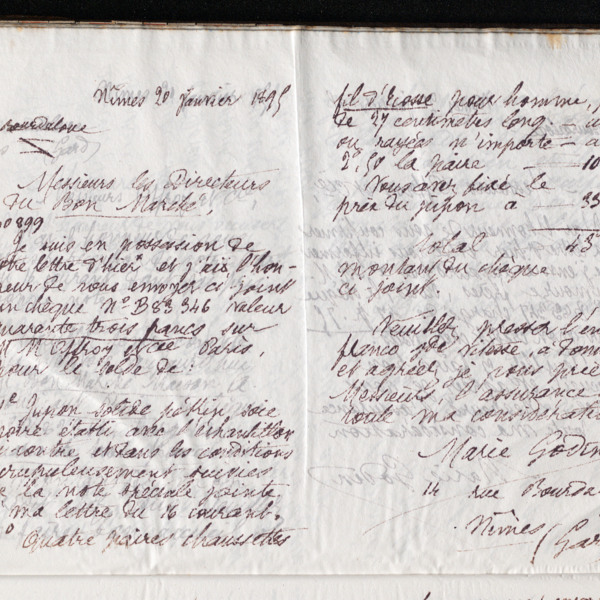 Nîmes 20 Janvier 1895
Bourdaloue
Messieurs les Directeurs
du Bon Marché,
0899
Je suis en possession de
otre lettre d'hier et j'ai l'hon-
neur de vous envoyer ci joint
un chèque N° B83346 valeur
quarante trois francs sur
Mallet Paris,
pour le solde de:
1e Jupon solide pékin soie
noire établi avec l'échantillon
ci contre, et dans les conditions
scrupuleusement suivies
de la note spéciale jointe
à ma lettre du 16 courant.
2o Quatre paires chaussettes
fil d'Ecosse pour homme,
de 27 centimètres long.
ou rayées n'importe - à
2f,50 la paire - 10
Vous avez fixé le
prix du jupon à - 33
Total 43
montant du chèque
ci-joint.
Veuillez presser l'en
franco gde vitesse, à dom
et agréer je vous prie
Messieurs, l'assurance
toute ma considérati
Marie Godin
14 rue Bourda
Nîmes (Gar